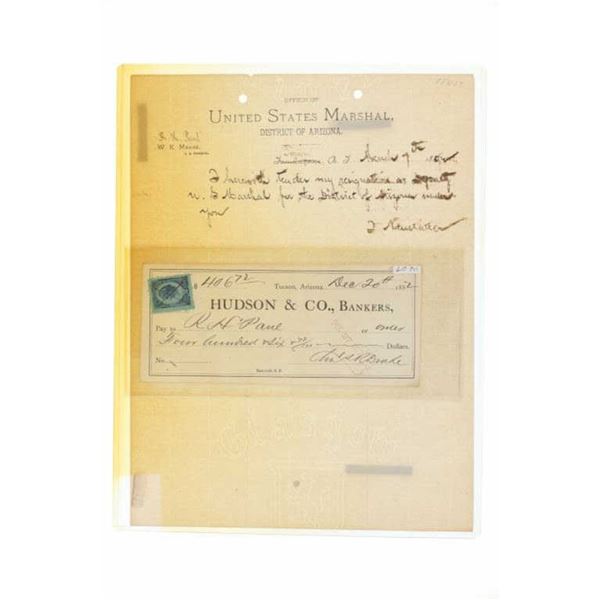 OFFICE OF
UNITED STATES MARSHAL,
DISTRICT OF ARIZONA.
W. K. MEADE,
A. T. March 7th
I herewith tender my resignation as Deputy
U. S Marshal for the District of Arizona under
you
$ 406 72
Tucson, Arizona, Dec 20th 188
HUDSON & CO., BANKERS,
Pay to R. H. Paul or order
Four hundred & six 72/100 Dollars.
No.
Chas. R. Drake